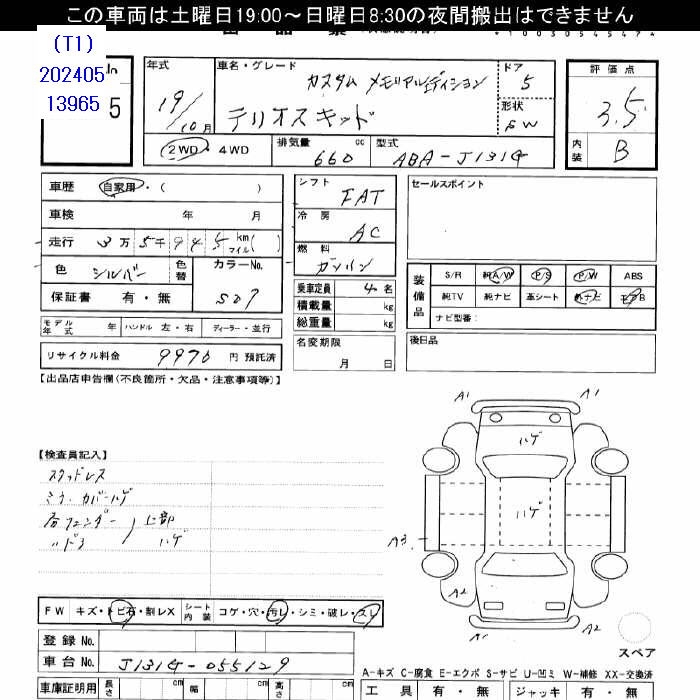 この車両は土曜日19:00～日曜日8:30の夜間搬出はできません
(T1)
202405
13965
5
年式 19/10月
車名・グレード カスタム メモリアルエディション
テリオスキッド
ドア 5
形状 SW
評価点 3.5
内装 B
2WD・4WD
排気量 660 cc
型式 ABA-J131G
車歴 自家用・( )
車検 年 月
走行 3万5千945 km マイル( )
色 シルバー 色替
カラーNo. S07
保証書 有・無
シフト FAT
冷房 AC
燃料 ガソリン
乗車定員 4名
積載量 kg
総重量 kg
セールスポイント
装備品 S/R 純A/W P/S P/W ABS
純TV 純ナビ 革シート
ナビ型番:
モデル年式 年 ハンドル 左・右 ディーラー・並行
リサイクル料金 9970 円 預託済
名変期限
月 日
後日品
【出品店申告欄(不良箇所・欠品・注意事項等)】
A1 A1
ハゲ
ハゲ
A3
A2 A2
スペア
【検査員記入】
スタッドレス
ミラーカバーハゲ
右フェンダー
〃ドア
上部
ハゲ
FW キズ・トビ石・割レX
シート内装 コゲ・穴・汚レ・シミ・破レ・スレ
登録No.
車台No. J131G-055129
車庫証明用 長さ cm 幅 cm 高さ cm
A-キズ C-腐食 E-エクボ S-サビ U-凹ミ W-補修 XX-交換済
工具 有・無 ジャッキ 有・無